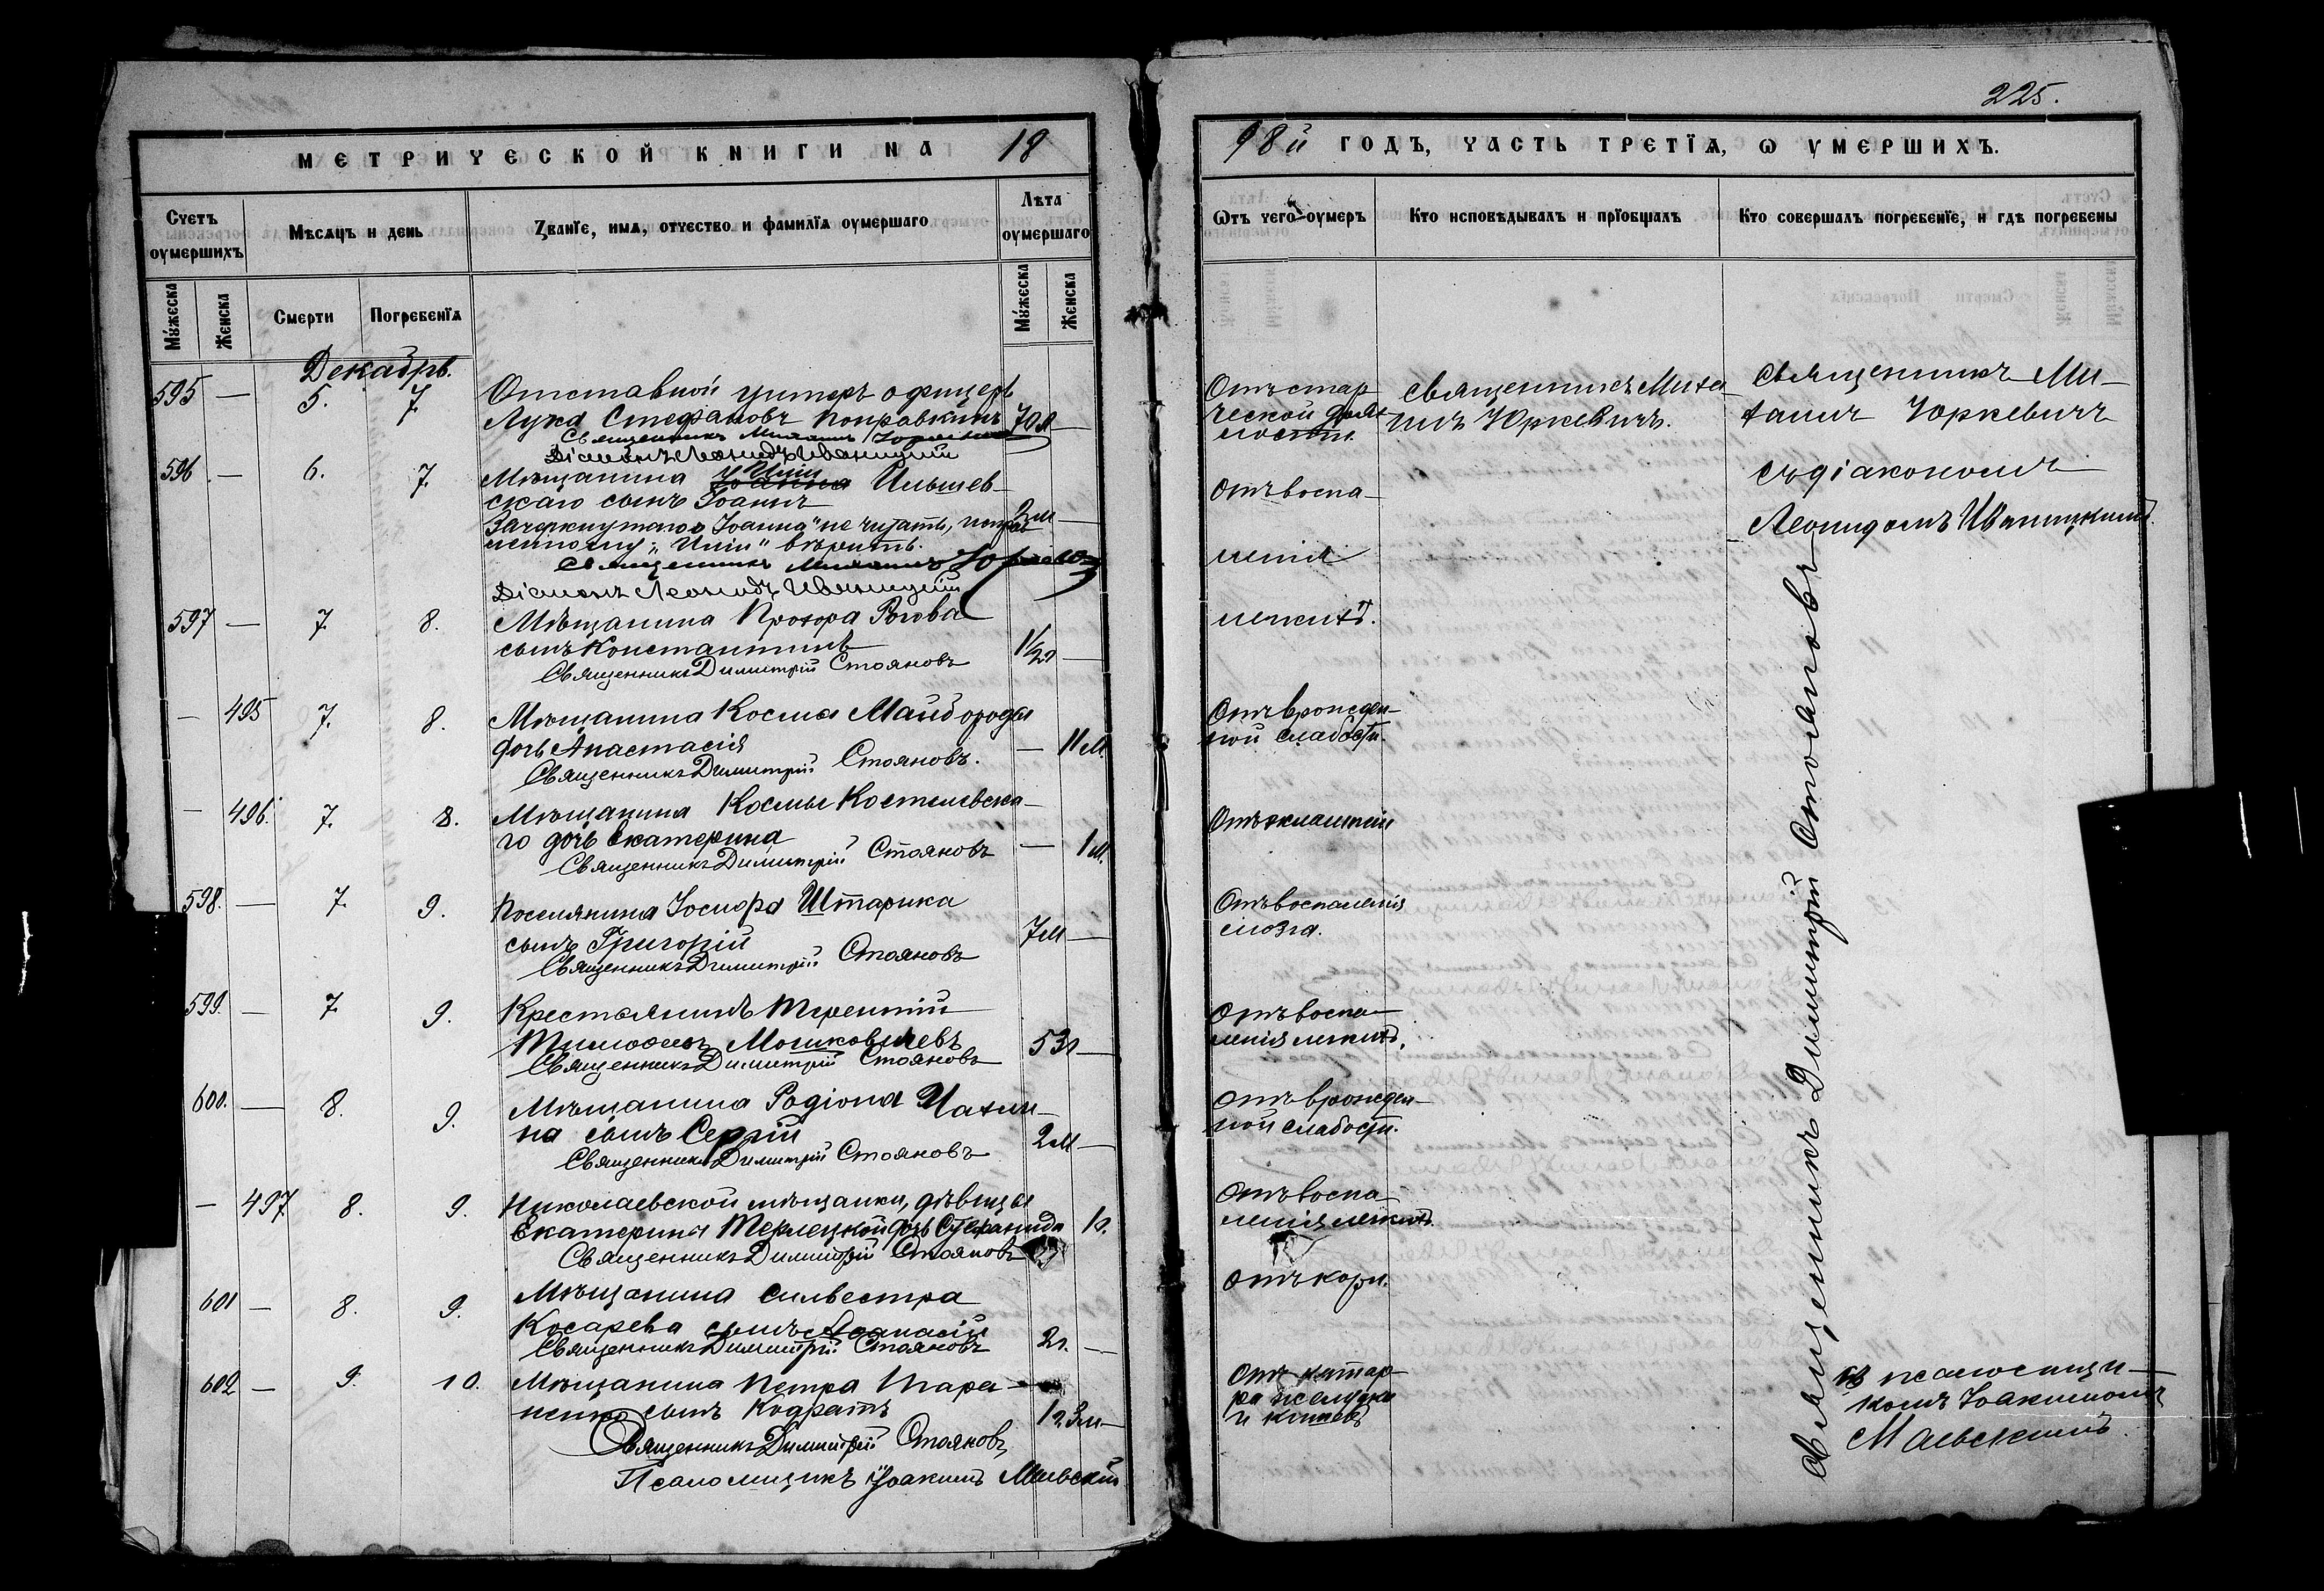 225.
МЕТРИЧЕСКОЙ КНИГИ НА 18
98й ГОДЪ, ЧАСТЬ ТРЕТЇѦ, Ѡ УМЕРШИХЪ.
Счетъ оумершихъ
Мѣсѧцъ и день
Званїе, имѧ, отчество и фамилїѧ оумершаго
Лѣта оумершаго
Мужеска
Женска
Смерти
Погребенїѧ
Мужеска
Женска
Ѿтъ чего оумеръ
Кто исповѣдывалъ и прїобщалъ
Кто совершалъ погребенїе, и гдѣ погребены
Декабрь.
595 — 5. 7. Отставной унтеръ офицеръ
Лука Стефановъ Поправкинъ 70 л —
Священникъ Михаилъ Юркевичъ
Діаконъ Леонидъ Иваницкій
Отъ стар
ческой дрях
лости.
Священникъ Миха
илъ Юркевичъ.
Священникъ Ми–
хаилъ Юркевичъ
съ діакономъ
Леонидомъ Иваницкимъ.
596. — 6. 7. Мѣщанина Иліи Ильшев–
скаго сынъ Іоаннъ
Зачеркнутаго „Іоанна" не читать, исправ
ленному „Иліи" вѣрить. 2 м —
Священникъ Михаилъ Юркевичъ
Діаконъ Леонидъ Иваницкій
Отъ воспа–
ленія
легкихъ.
597 — 7. 8. Мѣщанина Прохора Рогова
сынъ Константинъ 1½ —
Священникъ Димитрій Стояновъ
— 495 7. 8. Мѣщанина Косма Майбороды
дочь Анастасія — 11 м.
Священникъ Димитрій Стояновъ.
Отъ врожден–
ной слабости.
— 496. 7. 8. Мѣщанина Космы Костилевска–
го дочь Екатерина — 1 м.
Священникъ Димитрій Стояновъ
Отъ эклампсіи
598. — 7. 9. Поселянина Іосифа Штарика
сынъ Григорій 7 м —
Священникъ Димитрій Стояновъ
Отъ воспаленія
мозга.
599. — 7. 9. Крестьянинъ Терентій
Тимофеевъ Мошковичевъ 53 л —
Священникъ Димитрій Стояновъ
Отъ воспа–
ленія легкихъ.
600. — 8. 9. Мѣщанина Родіона Чахли–
на сынъ Сергій 2 м —
Священникъ Димитрій Стояновъ
Отъ врожден–
ной слабости.
— 497 8. 9. Николаевской мѣщанки, дѣвицы
Екатерины Терлецкой дочь Стефанида 1 г.
Священникъ Димитрій Стояновъ
Отъ воспа–
ленія легкихъ.
601 — 8. 9. Мѣщанина Силвестра
Косарева сынъ Афанасій 2 г. —
Священникъ Димитрій Стояновъ
Отъ кори.
602 — 9. 10. Мѣщанина Петра Тара–
ненко сынъ Кодратъ 1 г. 3 м —
Священникъ Димитрій Стояновъ
Псаломщикъ Іоакимъ Маевскій
Отъ катар–
ра желудка
и кишекъ
Священникъ Димитрій Стояновъ
съ псаломщи–
комъ Іоакимомъ
Маевскимъ.